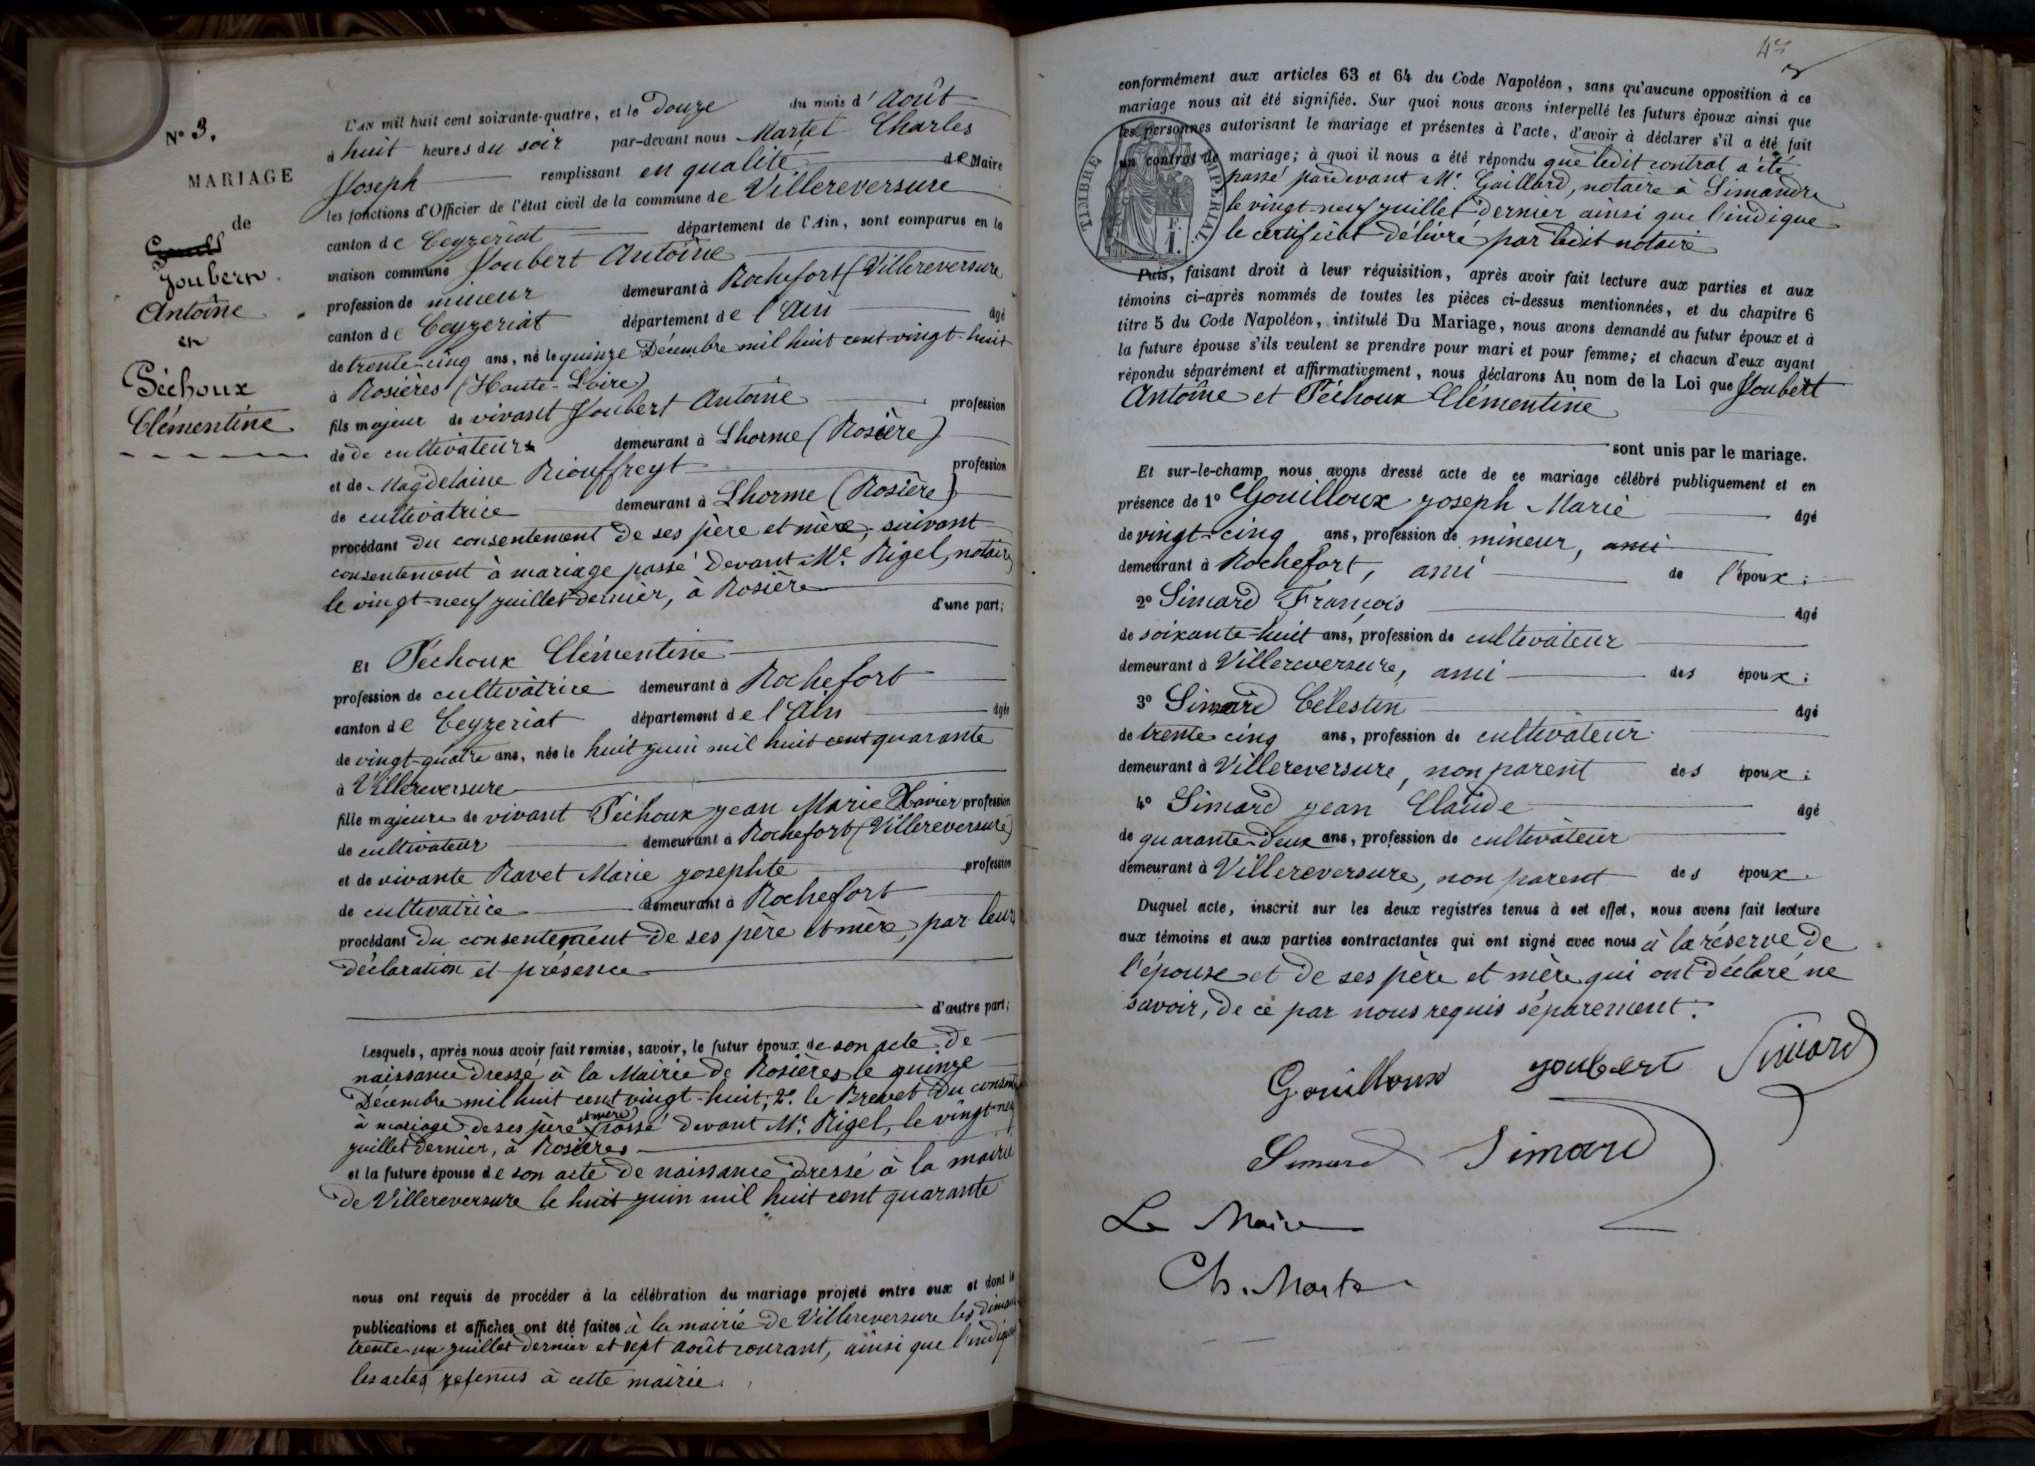 N° 3.
MARIAGE
de
Joubert
Antoine
et
Péchoux
Clémentine
L'an mil huit cent soixante-quatre, et le douze du mois d'Août
à huit heures du soir par-devant nous Martel Charles
Joseph remplissant en qualité de Maire
les fonctions d'Officier de l'état civil de la commune de Villereversure
canton de Ceyzeriat département de l'Ain, sont comparus en la
maison commune Joubert Antoine
profession de mineur demeurant à Rochefort (Villereversure
canton de Ceyzeriat département de l'Ain âgé
de trente-cinq ans, né le quinze Décembre mil huit cent vingt-huit
à Rosières (Haute-Loire)
fils majeur de vivant Joubert Antoine profession
de de cultivateur demeurant à Lhorme (Rosière)
et de Magdelaine Riouffreyt profession
de cultivatrice demeurant à Lhorme (Rosière)
procédant du consentement de ses père et mère, suivant
consentement à mariage passé devant Me. Rigel, notaire
le vingt-neuf juillet dernier, à Rosière
d'une part;
Et Péchoux Clémentine
profession de cultivatrice demeurant à Rochefort
canton de Ceyzeriat département de l'Ain âgée
de vingt-quatre ans, née le huit juin mil huit cent quarante
à Villereversure
fille majeure de vivant Péchoux Jean Marie Xavier profession
de cultivateur demeurant à Rochefort (Villereversure)
et de vivante Ravet Marie Josephte profession
de cultivatrice demeurant à Rochefort
procédant du consentement de ses père et mère, par leur
déclaration et présence
d'autre part;
Lesquels, après nous avoir fait remise, savoir, le futur époux de son acte de
naissance dressé à la Mairie de Rosières le quinze
Décembre mil huit cent vingt-huit; 2° le Brevet du consent
à mariage de ses père et mère passé devant Me. Rigel, le vingt-neuf
juillet dernier, à Rosières
et la future épouse de son acte de naissance dressé à la mairie
de Villereversure le huit juin mil huit cent quarante
nous ont requis de procéder à la célébration du mariage projeté entre eux et dont les
publications et affiches ont été faites à la mairie de Villereversure les dimanches
trente un juillet dernier et sept août courant, ainsi que l'indiquent
les actes retenus à cette mairie.
conformément aux articles 63 et 64 du Code Napoléon, sans qu'aucune opposition à ce
mariage nous ait été signifiée. Sur quoi nous avons interpellé les futurs époux ainsi que
les personnes autorisant le mariage et présentes à l'acte, d'avoir à déclarer s'il a été fait
un contrat de mariage; à quoi il nous a été répondu que ledit contrat a été
passé pardevant Me. Gaillard, notaire à Simandre
le vingt-neuf juillet dernier ainsi que l'indique
le certificat délivré par ledit notaire
TIMBRE IMPERIAL
Puis, faisant droit à leur réquisition, après avoir fait lecture aux parties et aux
témoins ci-après nommés de toutes les pièces ci-dessus mentionnées, et du chapitre 6
titre 5 du Code Napoléon, intitulé Du Mariage, nous avons demandé au futur époux et à
la future épouse s'ils veulent se prendre pour mari et pour femme; et chacun d'eux ayant
répondu séparément et affirmativement, nous déclarons Au nom de la Loi que Joubert
Antoine et Péchoux Clémentine
sont unis par le mariage.
Et sur-le-champ nous avons dressé acte de ce mariage célébré publiquement et en
présence de 1° Gouilloux Joseph Marie âgé
de vingt-cinq ans, profession de mineur, ami
demeurant à Rochefort, ami de l'époux;
2° Simard François âgé
de soixante-huit ans, profession de cultivateur
demeurant à Villereversure, ami des époux;
3° Simard Célestin âgé
de trente cinq ans, profession de cultivateur
demeurant à Villereversure, non parent des époux;
4° Simard Jean Claude âgé
de quarante-deux ans, profession de cultivateur
demeurant à Villereversure, non parent des époux.
Duquel acte, inscrit sur les deux registres tenus à cet effet, nous avons fait lecture
aux témoins et aux parties contractantes qui ont signé avec nous à la réserve de
l'épouse et de ses père et mère qui ont déclaré ne
savoir, de ce par nous requis séparement.
Gouilloux Joubert Simard
Simard Simard
Le Maire
Ch. Martel